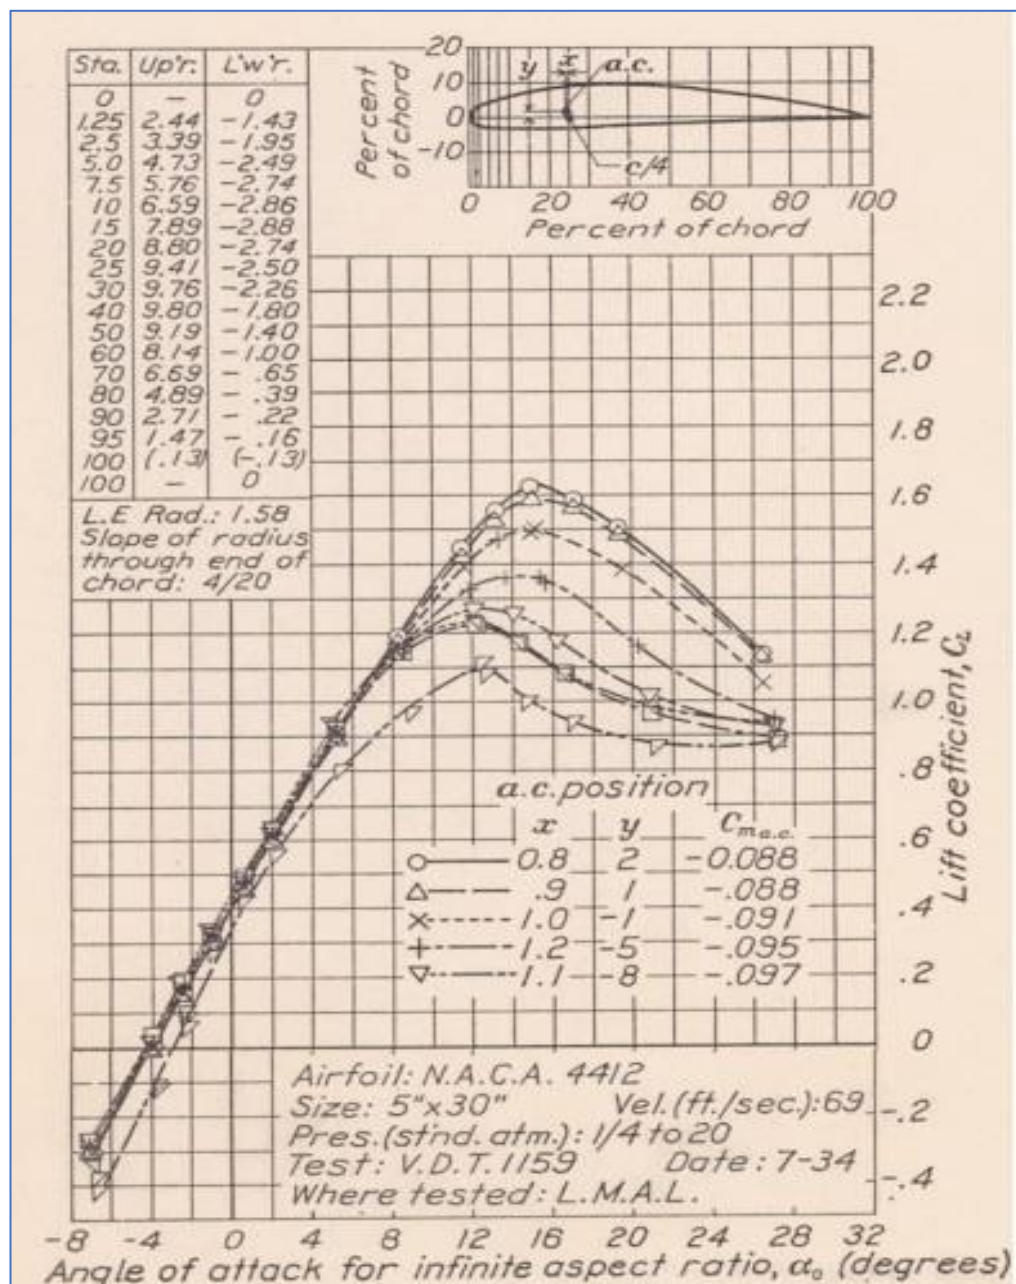 Sta. Up'r. L'w'r.
0 — 0
1.25 2.44 -1.43
2.5 3.39 -1.95
5.0 4.73 -2.49
7.5 5.76 -2.74
10 6.59 -2.86
15 7.89 -2.88
20 8.80 -2.74
25 9.41 -2.50
30 9.76 -2.26
40 9.80 -1.80
50 9.19 -1.40
60 8.14 -1.00
70 6.69 - .65
80 4.89 - .39
90 2.71 - .22
95 1.47 - .16
100 (.13) (-.13)
100 — 0
L.E Rad.: 1.58
Slope of radius
through end of
chord: 4/20
Percent
of chord
20
10
0
-10
y x a.c.
c/4
0 20 40 60 80 100
Percent of chord
2.2
2.0
1.8
1.6
1.4
1.2
1.0
.8
.6
.4
.2
0
-.2
-.4
Lift coefficient, CL
a.c. position
x y Cma.c.
0.8 2 -0.088
.9 1 -.088
1.0 -1 -.091
1.2 -5 -.095
1.1 -8 -.097
Airfoil: N.A.C.A. 4412
Size: 5"x30" Vel.(ft./sec.):69
Pres.(st'nd. atm.): 1/4 to 20
Test: V.D.T. 1159 Date: 7-34
Where tested: L.M.A.L.
-8 -4 0 4 8 12 16 20 24 28 32
Angle of attack for infinite aspect ratio, α₀ (degrees)